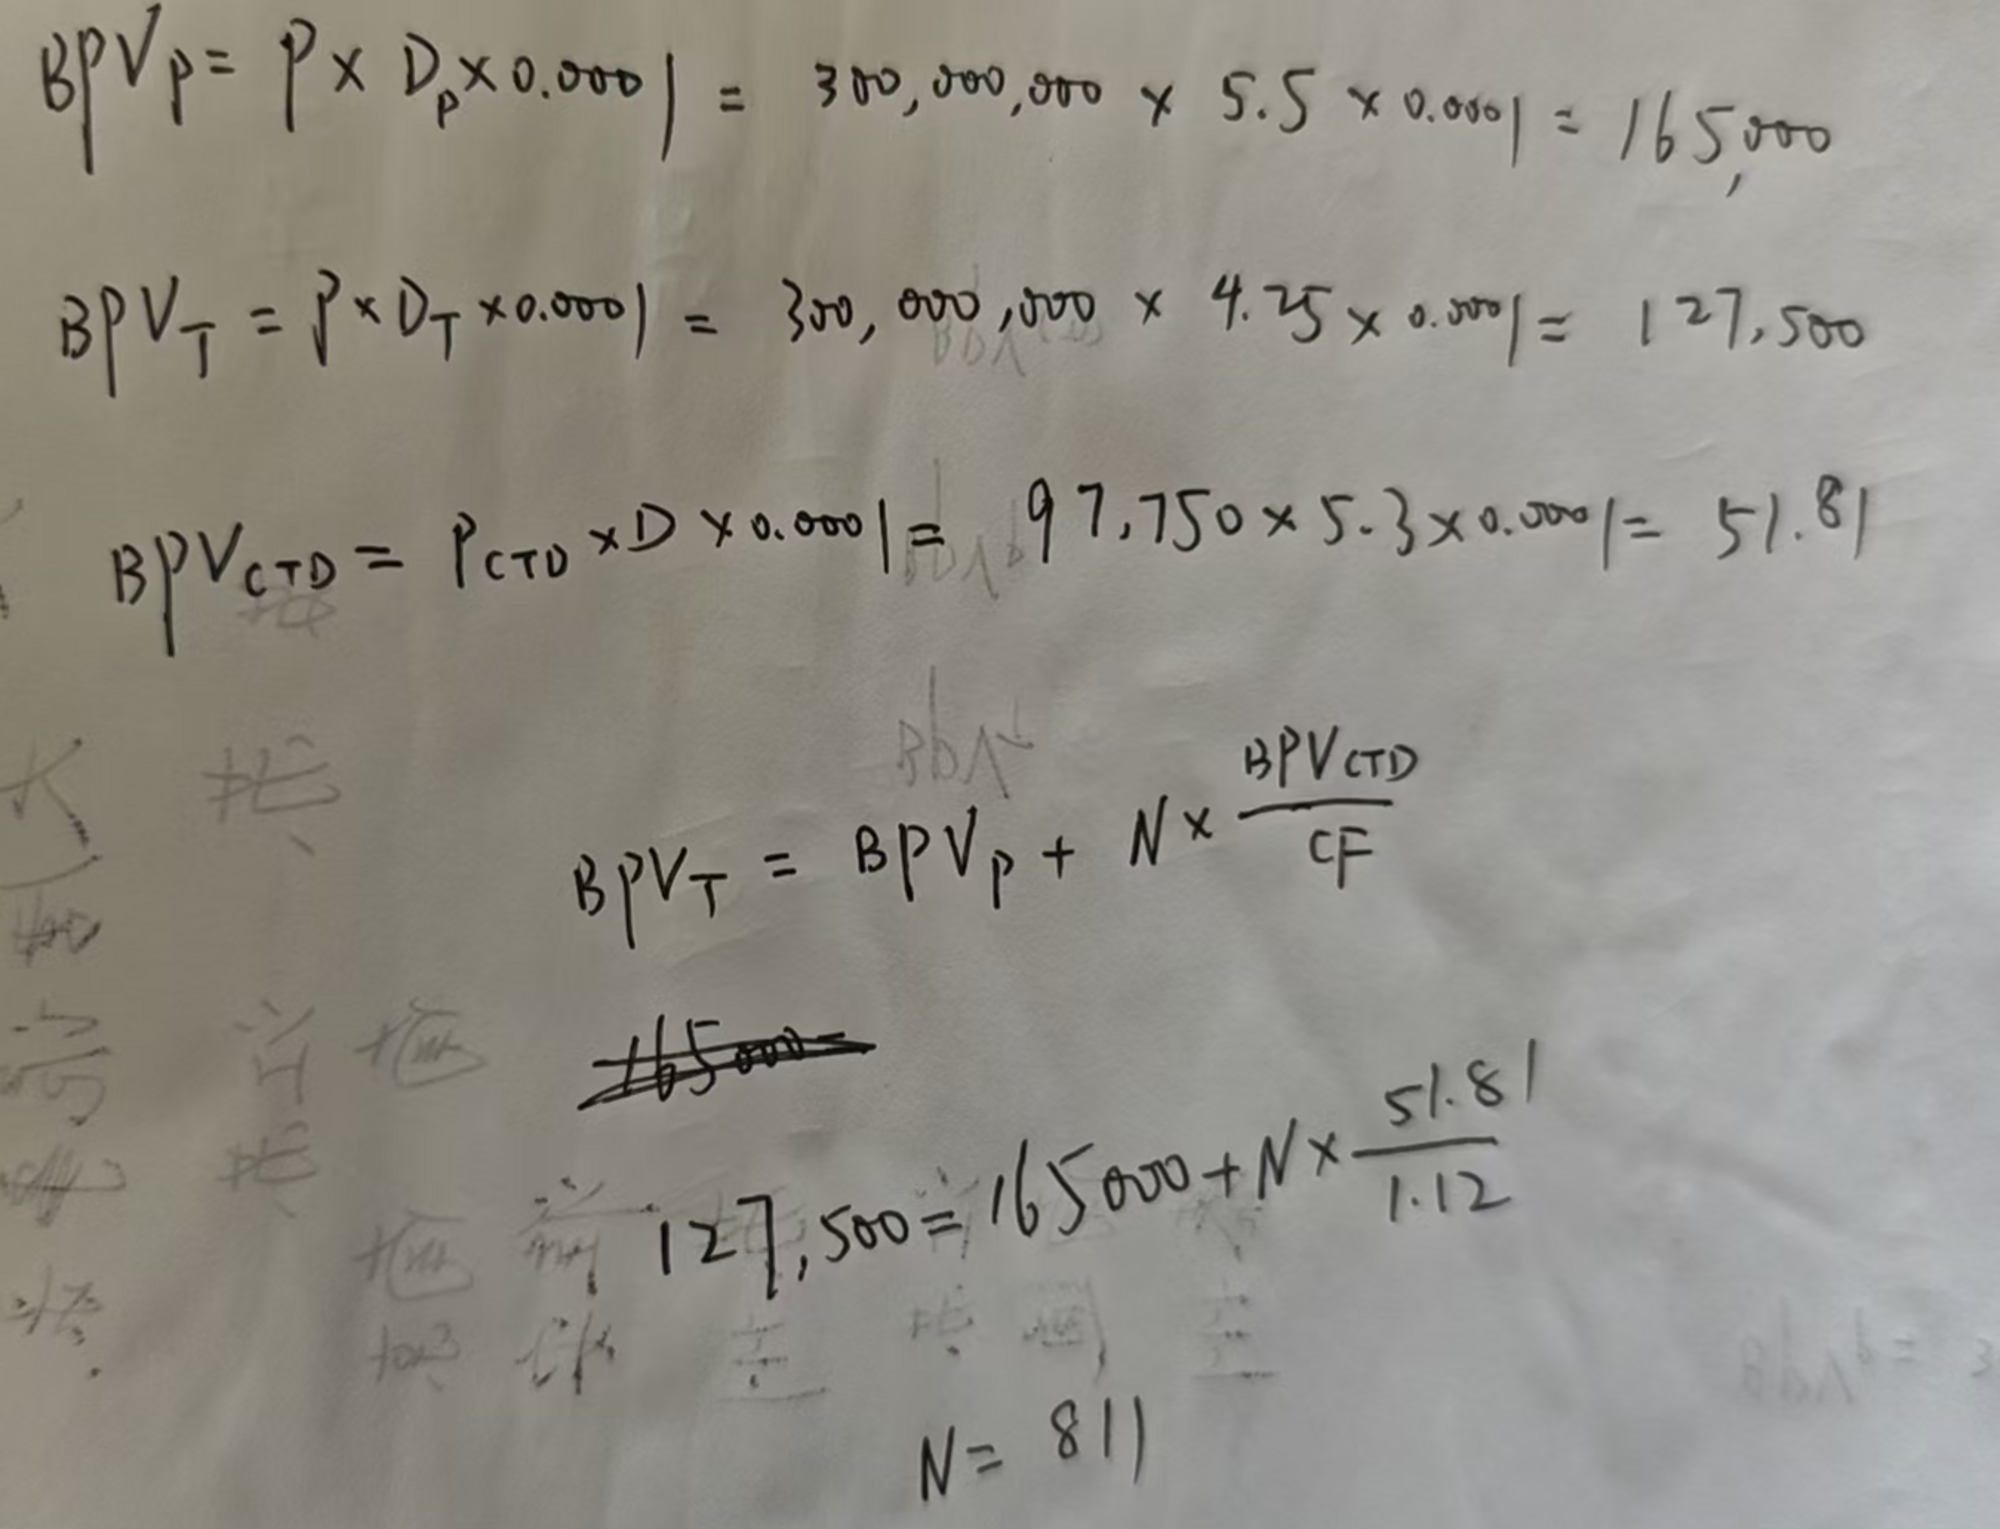 BPV_P = P × D_P × 0.0001 = 300,000,000 × 5.5 × 0.0001 = 165,000
BPV_T = P × D_T × 0.0001 = 300,000,000 × 4.25 × 0.0001 = 127,500
BPV_CTD = P_CTD × D × 0.0001 = 97,750 × 5.3 × 0.0001 = 51.81
BPV_T = BPV_P + N × BPV_CTD / CF
165000
127,500 = 165000 + N × 51.81 / 1.12
N = 811